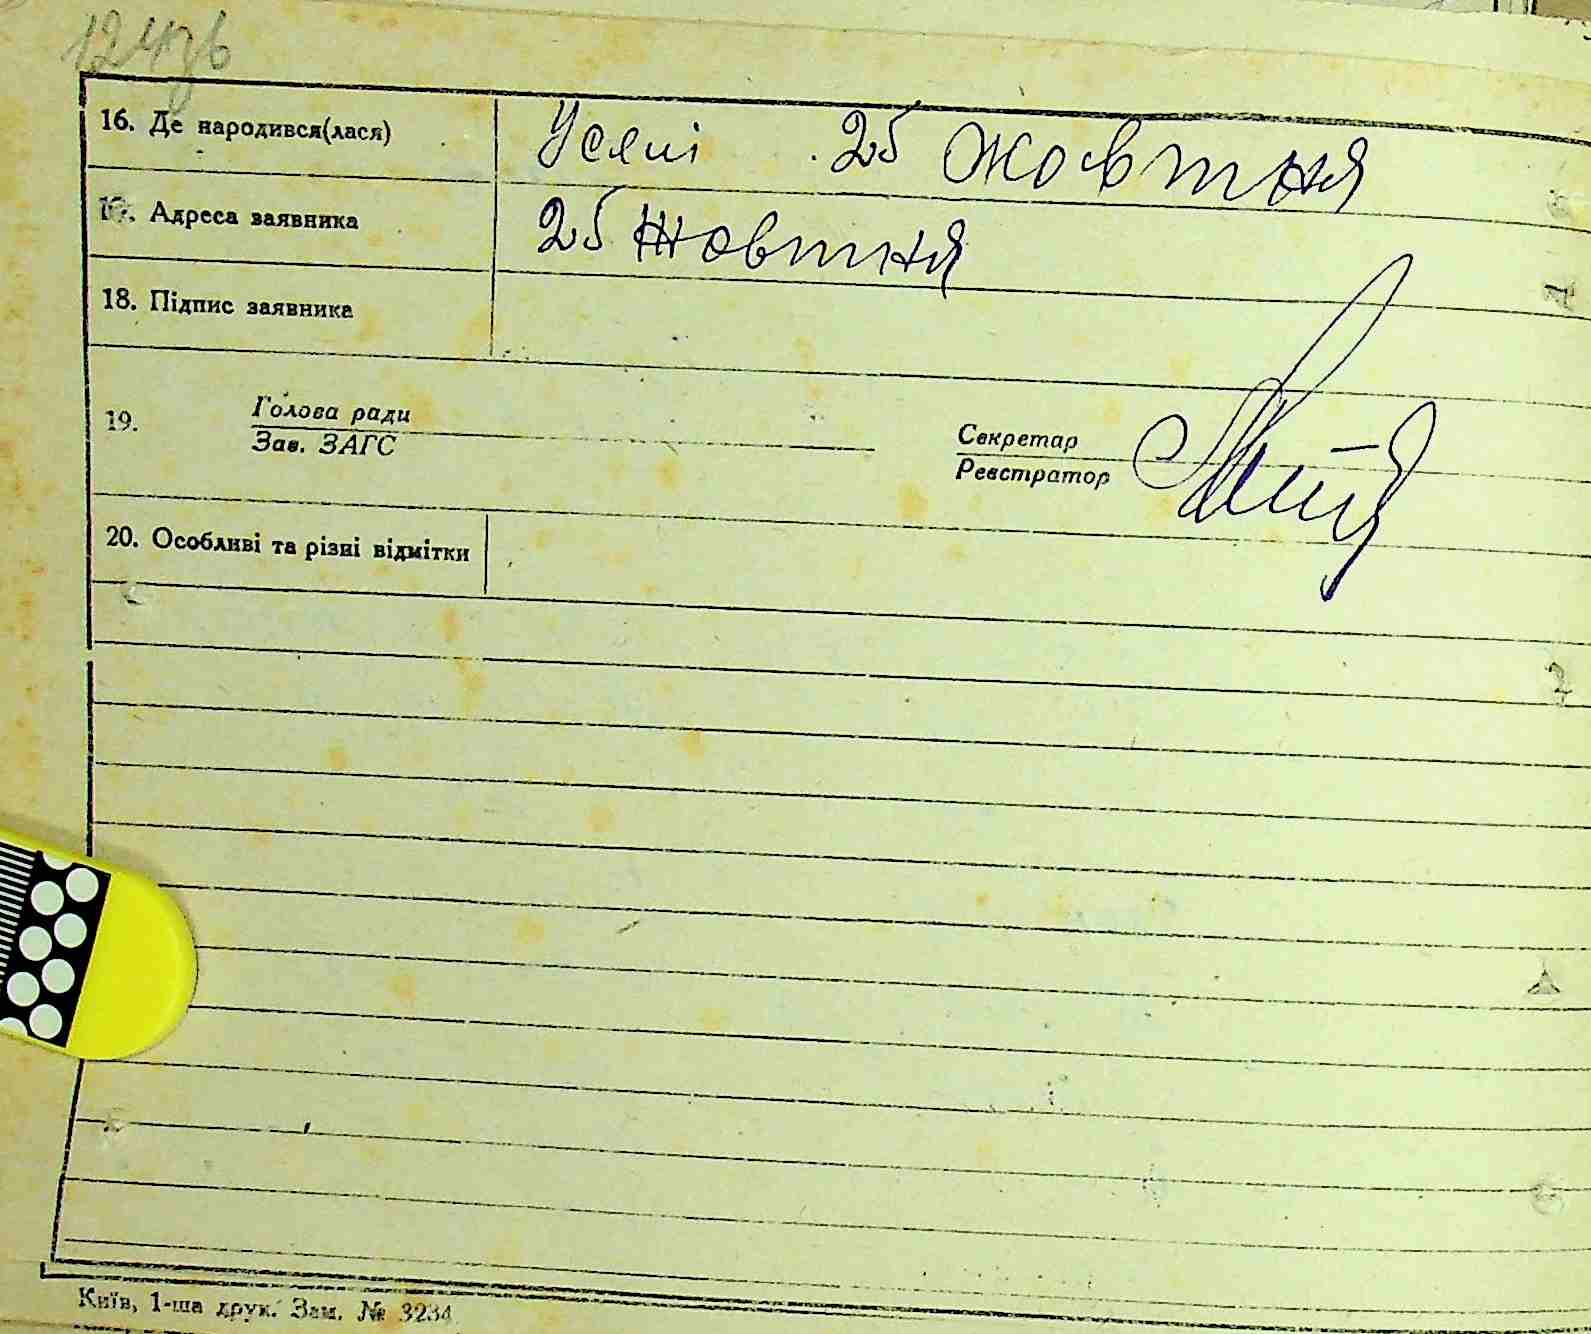 16. Де народився(лася) Уселі 25 Жовтня
17. Адреса заявника 25 Жовтня
18. Підпис заявника
19. Голова ради
Зав. ЗАГС
Секретар
Реєстратор
20. Особливі та різні відмітки
Київ, 1-ша друк. Зам. № 3234